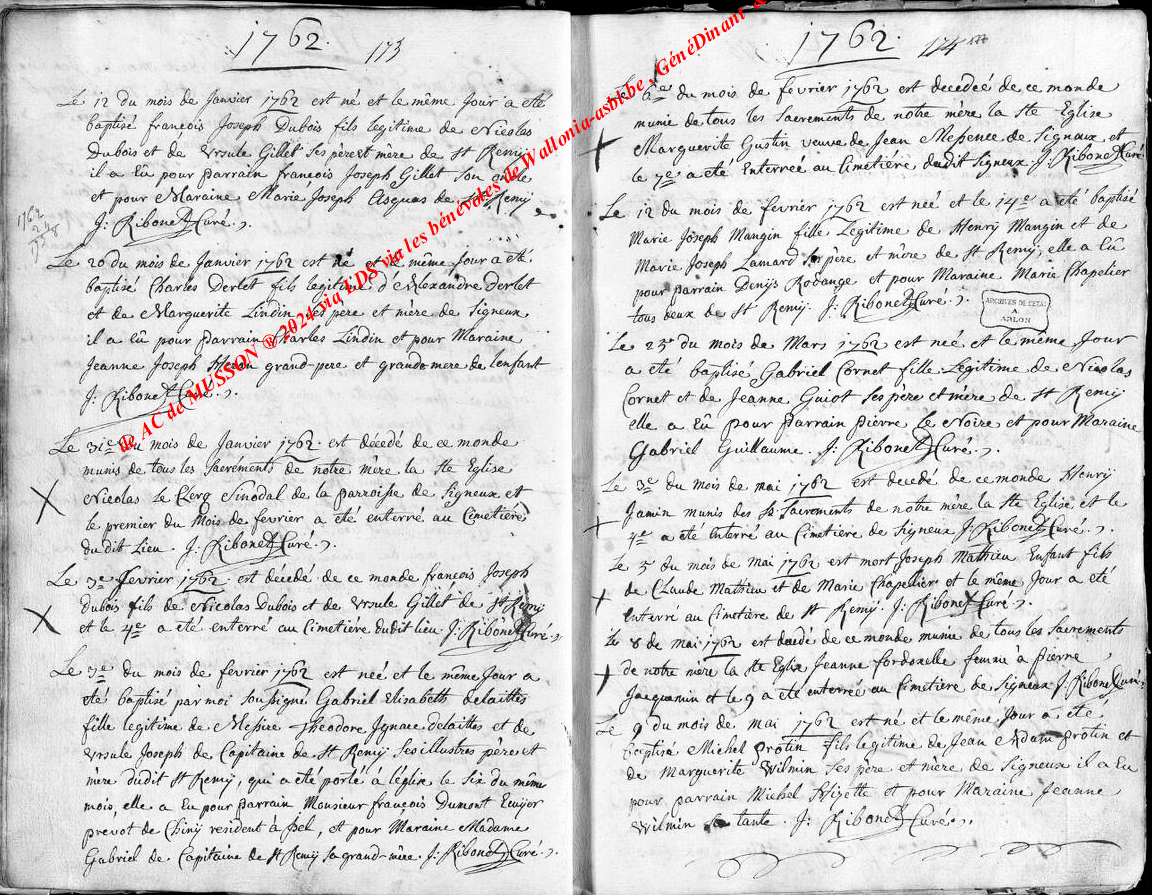 1762.
173
Le 12 du mois de Janvier 1762 est né et le même Jour a eté
baptisé francois Joseph Dubois fils legitime de Nicolas
Dubois et de Ursule Gillet Ses pere et mère de St Remij
il a Eû pour parrain francois Joseph Gillet Son oncle
et pour Maraine Marie Joseph de St Remij
J: Ribonet Curé.
1762
Le 20 du mois de Janvier 1762 est né et le même Jour a eté
baptisé Charles Derlet fils legitime d'Alexandre Derlet
et de Marguerite Lindin Ses pere et mère de Signeux
il a Eû pour parrain Charles Lindin et pour Maraine
Jeanne Joseph grand-pere et grande mere de lenfant
J: Ribonet Curé.
Le 31e du mois de Janvier 1762. est décédé de ce monde
munis de tous les Sacréments de notre mère la Ste Eglise
Nicolas le Clerq Sinodal de la parroisse de Signeux et
le premier du Mois de fevrier a eté enterré au Cimetière
du dit Lieu. J: Ribonet Curé.
Le 3e fevrier 1762. est décédé de ce monde francois Joseph
Dubois fils de Nicolas Dubois et de Ursule Gillet de St Remij
et le 4e a eté enterré au Cimetière dudit lieu. J: Ribonet Curé.
Le 3e du mois de fevrier 1762 est neé et le même Jour a
eté baptisé par moi Soussigné Gabriel Elisabeth delaittes
fille legitime de Messire Theodore Ignace delaittes et de
Ursule Joseph de Capitaine de St Remij Ses illustres père et
mere dudit St Remij, qui a eté porté a l'église le Six du même
mois, elle a Eu pour parrain Monsieur françois Dumont Ecuijer
prévot de Chinij resident à Izel, et pour Maraine Madame
Gabriel de Capitaine de St Remij Sa grand-mére. J: Ribonet Curé.
1762.
174
177
Le 6e du mois de fevrier 1762 est decedeé de ce monde
munie de tous les Sacrements de notre mère la Ste Eglise
Marguerite Gustin veuve de Jean Mesence de Signeux et
le 7e a eté Enterreé au Cimetière dudit Signeux. J: Ribonet Curé
Le 12 du mois de fevrier 1762 est neé et le 14e a eté baptisé
Marie Joseph Mangin fille Legitime de Henrij Mangin et de
Marie Joseph Lamard Ses père et mère de St Remij, elle a Eû
pour parrain Denijs Rodange et pour Maraine Marie Chapelier
tous deux de St Remij. J: Ribonet Curé.
ARCHIVES DE L'ETAT
A
ARLON
Le 25 du mois de Mars 1762 est neé et le même Jour
a eté baptisé Gabriel Cornet fille Legitime de Nicolas
Cornet et de Jeanne Guiot Ses père et mère de St Remij
elle a Eû pour parrain pierre Le Noire et pour Maraine
Gabriel Guillaume. J: Ribonet Curé.
Le 3e du mois de mai 1762 est decedé de ce monde Henrij
Jamin munis des St Sacrements de notre mère la Ste Eglise et le
4e a eté Enterré au Cimetière de Signeux J: Ribonet Curé.
Le 5 du mois de Mai 1762 est mort Joseph Mathieu Enfant fils
de Claude Mathieu et de Marie Chapellier et le même Jour a eté
enterré au Cimetière de St Remij. J: Ribonet Curé.
Le 8 de Mai 1762 est decedé de ce monde munie de tous les Sacrements
de notre mère la Ste Eglise Jeanne fordonelle femme à pierre
Jacquemin et le 9 a eté enterreé au Cimetière de Signeux J: Ribonet Curé.
Le 9 du mois de mai 1762 est né et le même Jour a eté
baptisé Michel protin fils legitime de Jean Adam protin et
de Marguerite Wilmin Ses père et mère de Signeux il a Eu
pour parrain Michel et pour Maraine Jeanne
Wilmin Sa tante. J: Ribonet Curé.
de AC de MUSSON ® 2024 via LDS via les bénévoles de Wallonia-asbl.be , GénéDinant &